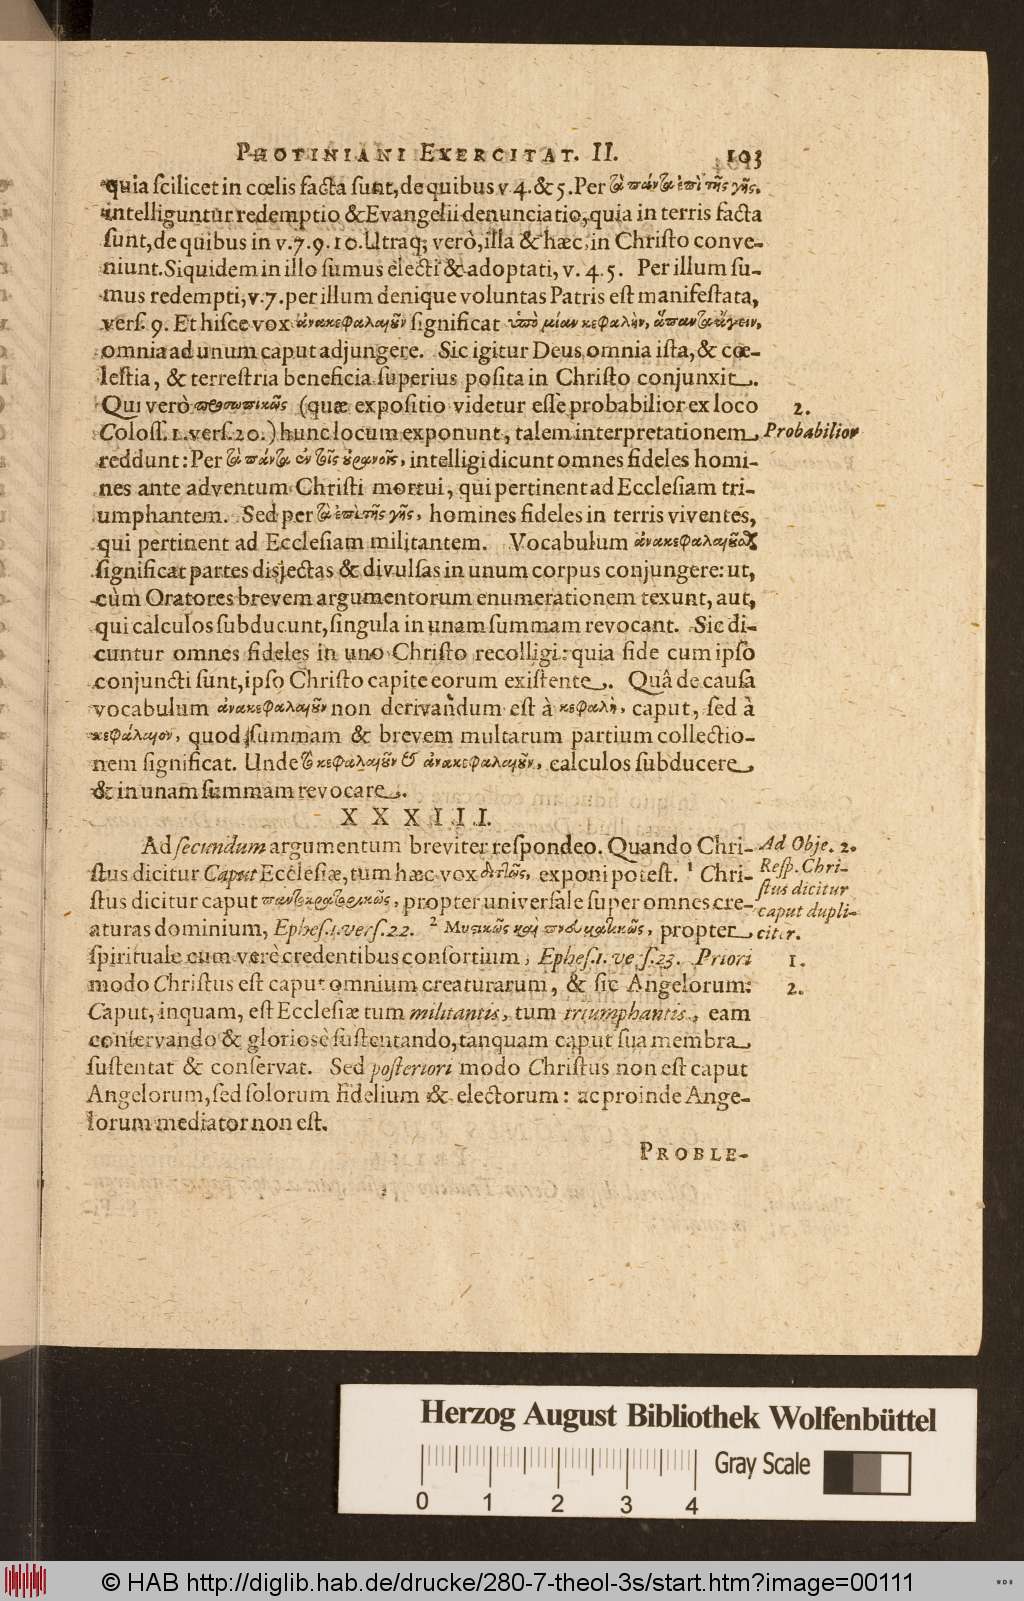 PHOTINIANI EXERCITAT. II. 103
quia scilicet in cœlis facta sunt, de quibus v 4. & 5. Per τὰ πάντα ἐπὶ τῆς γῆς.
intelliguntur redemptio & Evangelii denunciatio, quia in terris facta
sunt, de quibus in v. 7. 9. 10. Utraq; verò, illa & hæc, in Christo conve-
niunt. Siquidem in illo sumus electi & adoptati, v. 4. 5. Per illum su-
mus redempti, v. 7. per illum denique voluntas Patris est manifestata,
vers. 9. Et hisce vox ἀνακεφαλαιοῦν significat ὑπὸ μίαν κεφαλὴν, ἅπαντα ἄγειν,
omnia ad unum caput adjungere. Sic igitur Deus omnia ista, & cœ-
lestia, & terrestria beneficia superius posita in Christo conjunxit.
Qui verò προσωπικῶς (quæ expositio videtur esse probabilior ex loco
Coloss. 1. vers. 20.) hunc locum exponunt, talem interpretationem
2.
Probabilior
reddunt: Per τὰ πάντα ἐν τοῖς οὐρανοῖς, intelligi dicunt omnes fideles homi-
nes ante adventum Christi mortui, qui pertinent ad Ecclesiam tri-
umphantem. Sed per τὰ ἐπὶ τῆς γῆς, homines fideles in terris viventes,
qui pertinent ad Ecclesiam militantem. Vocabulum ἀνακεφαλαιοῦσθαι
significat partes disjectas & divulsas in unum corpus conjungere: ut,
cùm Oratores brevem argumentorum enumerationem texunt, aut,
qui calculos subducunt, singula in unam summam revocant. Sic di-
cuntur omnes fideles in uno Christo recolligi: quia fide cum ipso
conjuncti sunt, ipso Christo capite eorum existente. Quâ de causa
vocabulum ἀνακεφαλαιοῦν non derivandum est à κεφαλὴ, caput, sed à
κεφάλαιον, quod summam & brevem multarum partium collectio-
nem significat. Unde τὸ κεφαλαιοῦν & ἀνακεφαλαιοῦν, calculos subducere
& in unam summam revocare.
XXXIII.
Ad secundum argumentum breviter respondeo. Quando Chri-
stus dicitur Caput Ecclesiæ, tum hæc vox διττῶς, exponi potest. ¹ Chri-
stus dicitur caput παντοκρατορικῶς, propter universale super omnes cre-
aturas dominium, Ephes. 1. vers. 22. ² Μυστικῶς καὶ πνευματικῶς, propter
spirituale cum verè credentibus consortium, Ephes. 1. vers. 23. Priori
modo Christus est caput omnium creaturarum, & sic Angelorum:
Caput, inquam, est Ecclesiæ tum militantis, tum triumphantis, eam
conservando & gloriosè sustentando, tanquam caput sua membra
sustentat & conservat. Sed posteriori modo Christus non est caput
Angelorum, sed solorum Fidelium & electorum: ac proinde Ange-
lorum mediator non est.
Ad Obje. 2.
Resp. Chri-
stus dicitur
caput dupli-
citer.
1.
2.
PROBLE-
Herzog August Bibliothek Wolfenbüttel
Gray Scale
0 1 2 3 4
© HAB http://diglib.hab.de/drucke/280-7-theol-3s/start.htm?image=00111